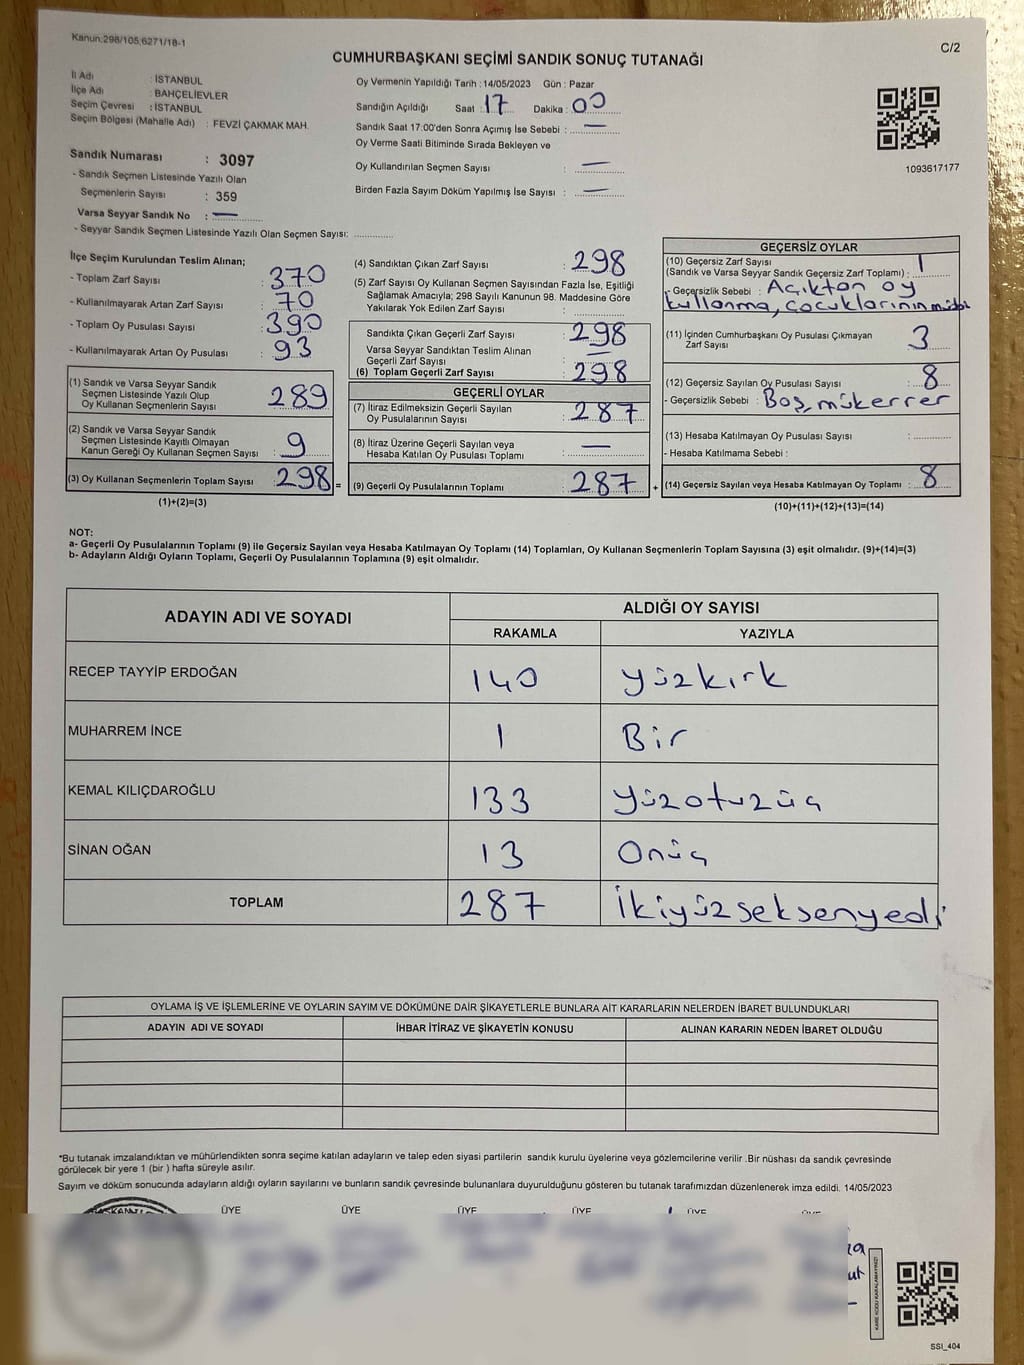 Kanun:298/105;6271/18-1
C/2
CUMHURBAŞKANI SEÇİMİ SANDIK SONUÇ TUTANAĞI
İl Adı : İSTANBUL
İlçe Adı : BAHÇELİEVLER
Seçim Çevresi : İSTANBUL
Seçim Bölgesi (Mahalle Adı) : FEVZİ ÇAKMAK MAH.
Sandık Numarası : 3097
- Sandık Seçmen Listesinde Yazılı Olan
Seçmenlerin Sayısı : 359
Varsa Seyyar Sandık No : —
- Seyyar Sandık Seçmen Listesinde Yazılı Olan Seçmen Sayısı: ..............
Oy Vermenin Yapıldığı Tarih : 14/05/2023 Gün : Pazar
Sandığın Açıldığı Saat : 17 Dakika : 00
Sandık Saat 17:00'den Sonra Açımış İse Sebebi : —
Oy Verme Saati Bitiminde Sırada Bekleyen ve
Oy Kullandırılan Seçmen Sayısı : —
Birden Fazla Sayım Döküm Yapılmış İse Sayısı : —
1093617177
İlçe Seçim Kurulundan Teslim Alınan;
- Toplam Zarf Sayısı : 370
- Kullanılmayarak Artan Zarf Sayısı : 70
- Toplam Oy Pusulası Sayısı : 390
- Kullanılmayarak Artan Oy Pusulası : 93
(1) Sandık ve Varsa Seyyar Sandık
Seçmen Listesinde Yazılı Olup
Oy Kullanan Seçmenlerin Sayısı : 289
(2) Sandık ve Varsa Seyyar Sandık
Seçmen Listesinde Kayıtlı Olmayan
Kanun Gereği Oy Kullanan Seçmen Sayısı : 9
(3) Oy Kullanan Seçmenlerin Toplam Sayısı : 298 =
(1)+(2)=(3)
(4) Sandıktan Çıkan Zarf Sayısı : 298
(5) Zarf Sayısı Oy Kullanan Seçmen Sayısından Fazla İse, Eşitliği
Sağlamak Amacıyla; 298 Sayılı Kanunun 98. Maddesine Göre
Yakılarak Yok Edilen Zarf Sayısı : ..............
Sandıkta Çıkan Geçerli Zarf Sayısı : 298
Varsa Seyyar Sandıktan Teslim Alınan
Geçerli Zarf Sayısı : —
(6) Toplam Geçerli Zarf Sayısı : 298
GEÇERLİ OYLAR
(7) İtiraz Edilmeksizin Geçerli Sayılan
Oy Pusulalarının Sayısı : 287
(8) İtiraz Üzerine Geçerli Sayılan veya
Hesaba Katılan Oy Pusulası Toplamı : —
(9) Geçerli Oy Pusulalarının Toplamı : 287 +
GEÇERSİZ OYLAR
(10) Geçersiz Zarf Sayısı
(Sandık ve Varsa Seyyar Sandık Geçersiz Zarf Toplamı) : 1
- Geçersizlik Sebebi : Açıktan oy
kullanma, çocuklarının
(11) İçinden Cumhurbaşkanı Oy Pusulası Çıkmayan
Zarf Sayısı 3
(12) Geçersiz Sayılan Oy Pusulası Sayısı : 8
- Geçersizlik Sebebi : Boş, mükerrer
(13) Hesaba Katılmayan Oy Pusulası Sayısı : ..............
- Hesaba Katılmama Sebebi :
(14) Geçersiz Sayılan veya Hesaba Katılmayan Oy Toplamı : 8
(10)+(11)+(12)+(13)=(14)
NOT:
a- Geçerli Oy Pusulalarının Toplamı (9) ile Geçersiz Sayılan veya Hesaba Katılmayan Oy Toplamı (14) Toplamları, Oy Kullanan Seçmenlerin Toplam Sayısına (3) eşit olmalıdır. (9)+(14)=(3)
b- Adayların Aldığı Oyların Toplamı, Geçerli Oy Pusulalarının Toplamına (9) eşit olmalıdır.
ADAYIN ADI VE SOYADI ALDIĞI OY SAYISI
RAKAMLA YAZIYLA
RECEP TAYYİP ERDOĞAN 140 yüzkırk
MUHARREM İNCE 1 Bir
KEMAL KILIÇDAROĞLU 133 yüzotuzüç
SİNAN OĞAN 13 Onüç
TOPLAM 287 İkiyüzseksenyedi
OYLAMA İŞ VE İŞLEMLERİNE VE OYLARIN SAYIM VE DÖKÜMÜNE DAİR ŞİKAYETLERLE BUNLARA AİT KARARLARIN NELERDEN İBARET BULUNDUKLARI
ADAYIN ADI VE SOYADI İHBAR İTİRAZ VE ŞİKAYETİN KONUSU ALINAN KARARIN NEDEN İBARET OLDUĞU
*Bu tutanak imzalandıktan ve mühürlendikten sonra seçime katılan adayların ve talep eden siyasi partilerin sandık kurulu üyelerine veya gözlemcilerine verilir .Bir nüshası da sandık çevresinde
görülecek bir yere 1 (bir ) hafta süreyle asılır.
Sayım ve döküm sonucunda adayların aldığı oyların sayılarını ve bunların sandık çevresinde bulunanlara duyurulduğunu gösteren bu tutanak tarafımızdan düzenlenerek imza edildi. 14/05/2023
ÜYE ÜYE ÜYE ÜYE ÜYE
KARE KODU KARALAMAYINIZ!
SSI_404